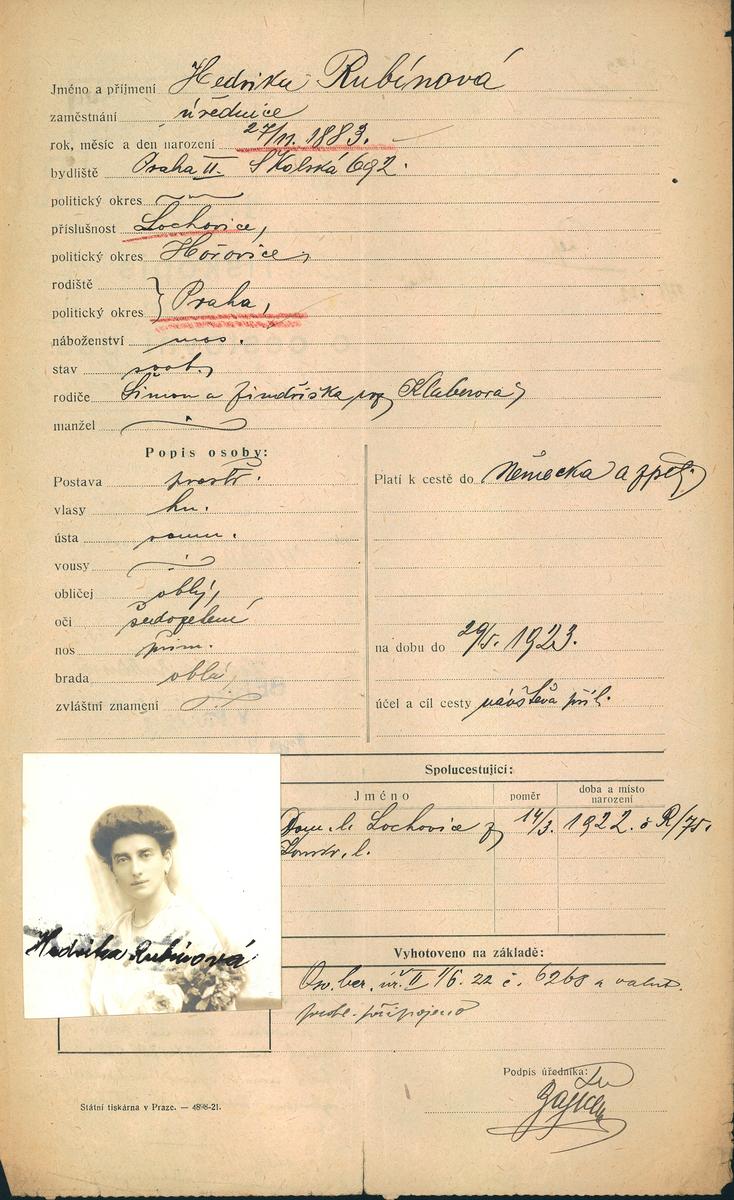 Jméno a příjmení Hedvika Rubínová
zaměstnání úřednice
rok, měsíc a den narození 27/11. 1883.
bydliště Praha II. Školská 692.
politický okres
příslušnost Lochovice,
politický okres Hořovice,
rodiště
politický okres } Praha,
náboženství mos.
stav svob.
rodiče Šimon a Jindřiška roz. Klaberova
manžel
Popis osoby:
Postava prostř.
vlasy hn.
ústa soum.
vousy
obličej oblý,
oči šedozelené
nos přim.
brada oblá
zvláštní znamení
Platí k cestě do Německa a zpět.
na dobu do 29/5. 1923.
účel a cíl cesty návštěva příb.
Spolucestující:
Jméno poměr doba a místo narození
Dom. l. Lochovice z 14/3. 1922. č R/75.
Vyhotoveno na základě:
II 1/6. 22 č. 6268 a valut.
připojeno
Hedvika Rubínová
Podpis úředníka:
Státní tiskárna v Praze. —